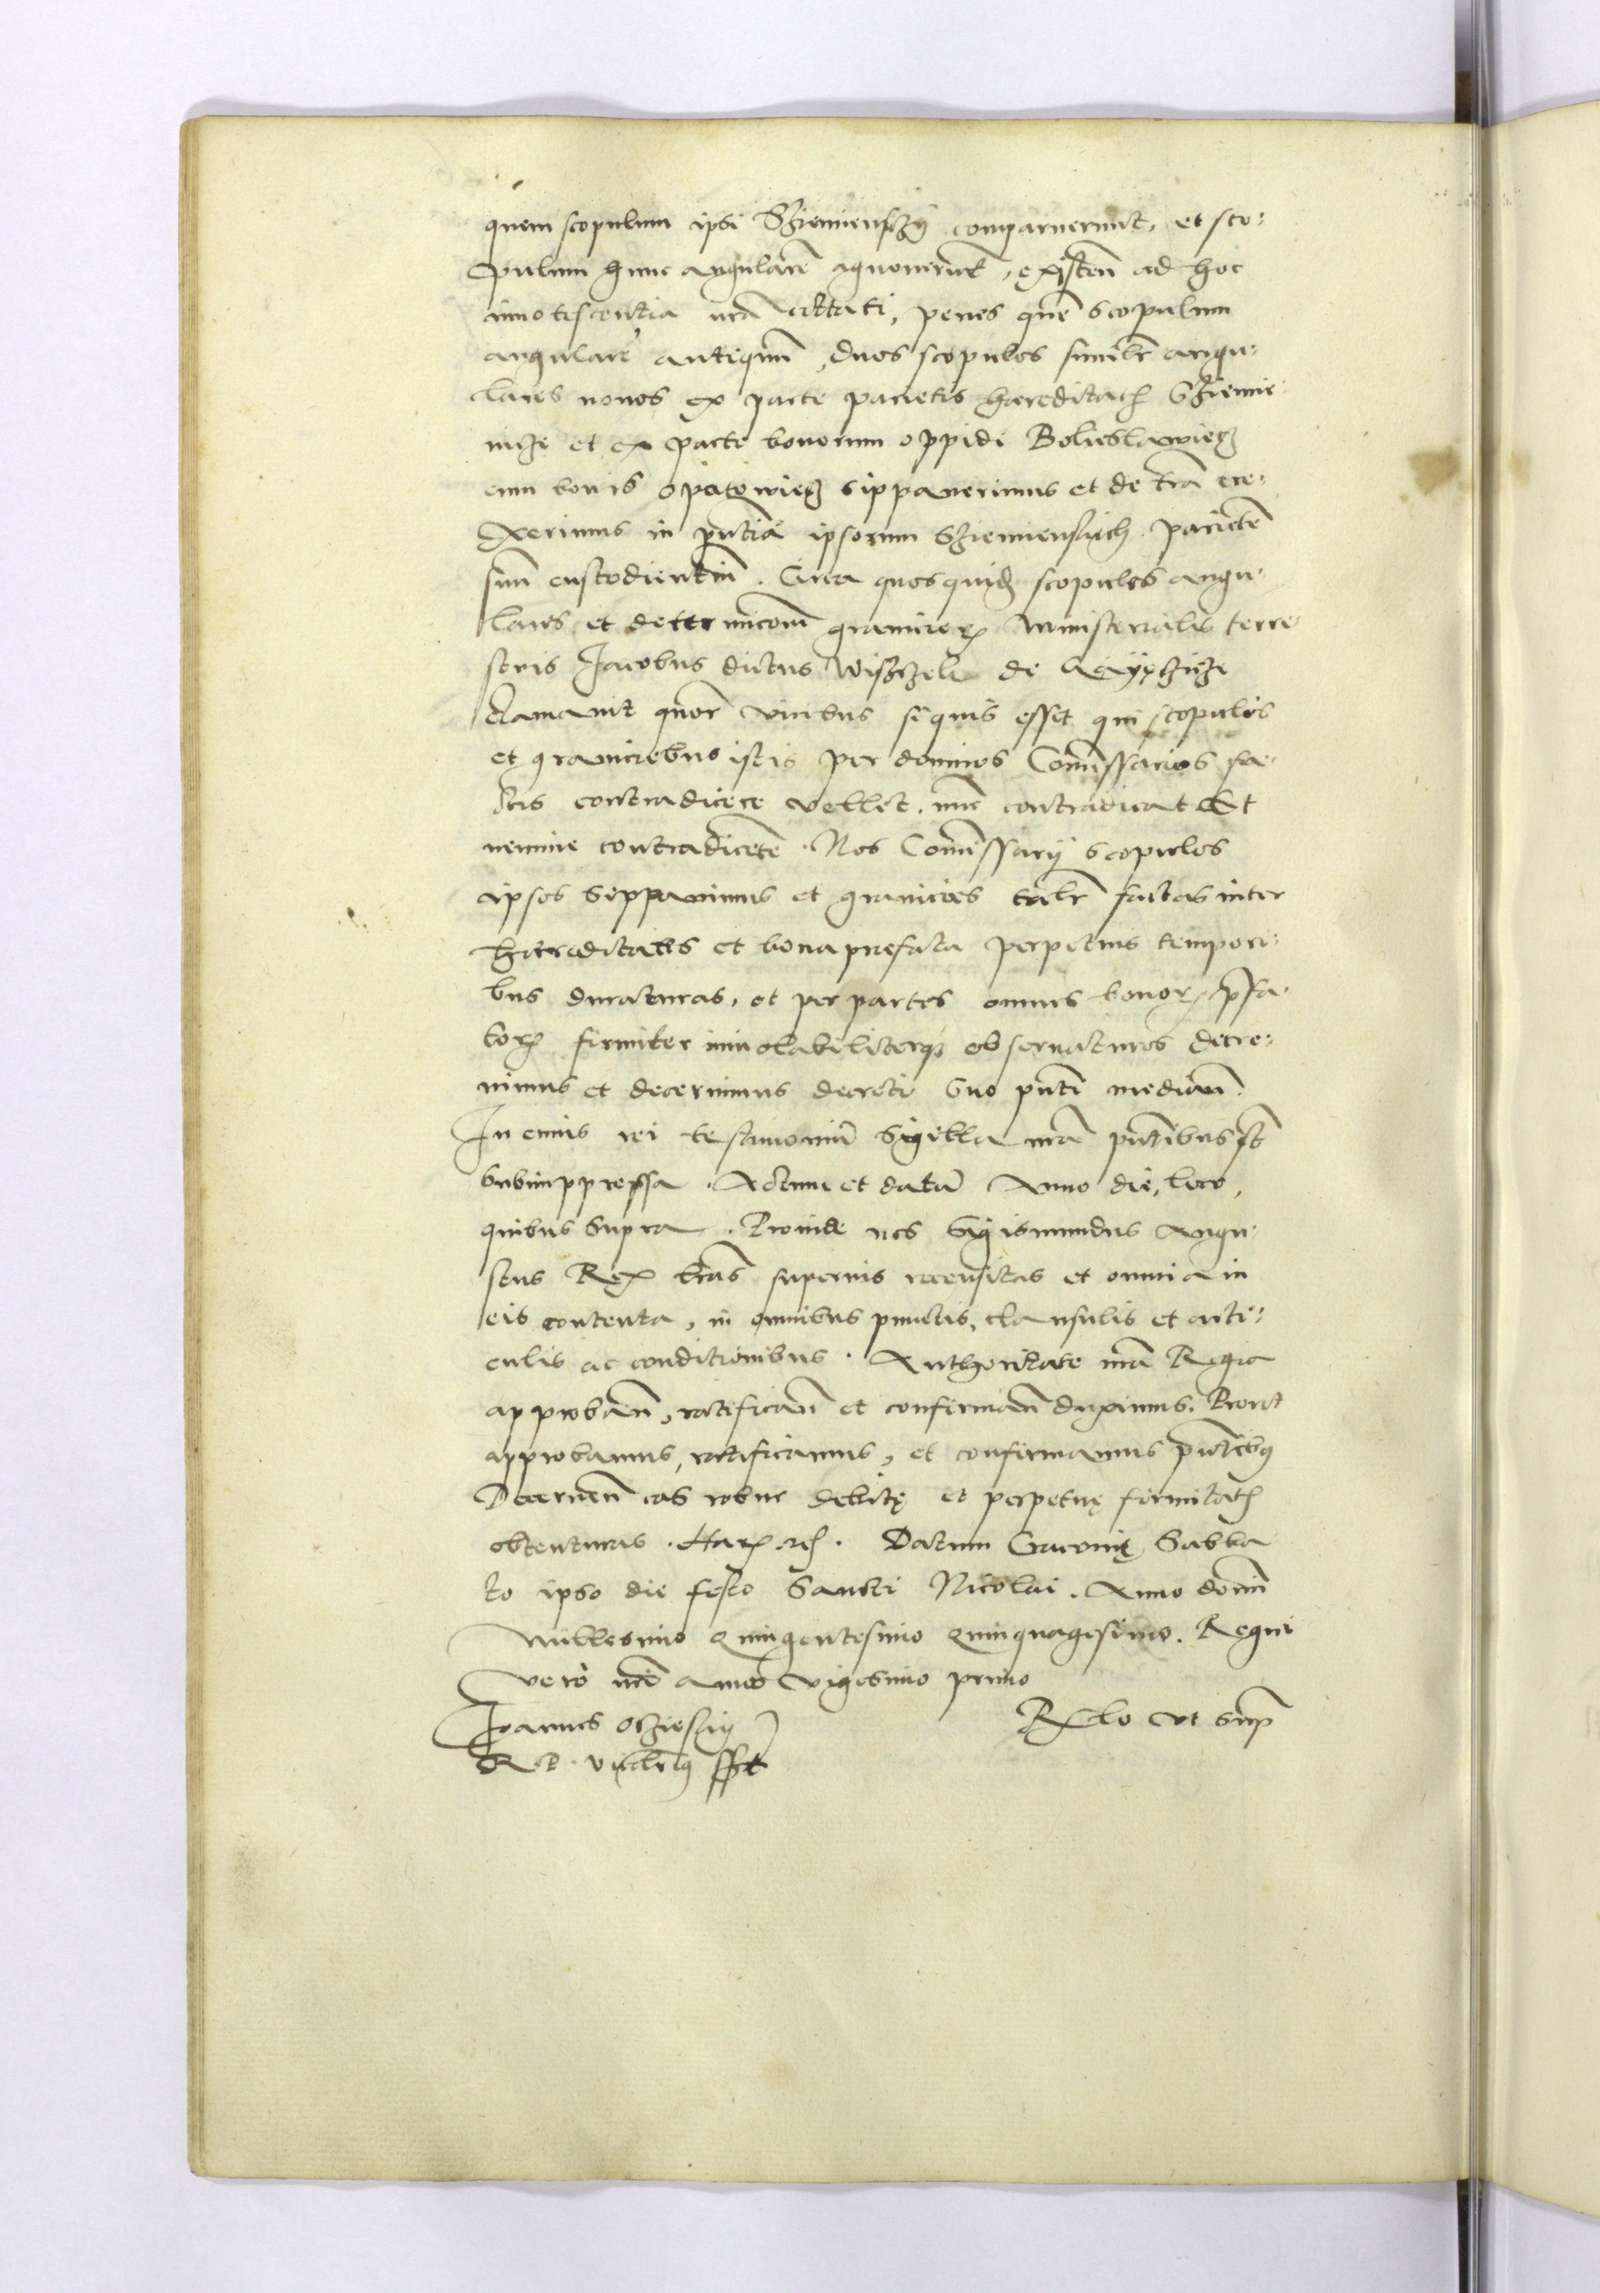 quem scopulum ipsi Sziemienszcÿ comparuerunt, et sco:
pulum hunc angularẽ agnouerũt, existeñ ad hoc
innotescentia nrã citati, penes quẽ scopulum
angularẽ antiquũ, duos scopulos similr̃ angu:
lares nouos ex parte parietis hereditatꝭ Sziemie
nicze et ex parte bonorum oppidi Bolieslawiecz
cum bonis opatowiecz sippauerimus et de trã ere:
xerimus in pñtia ipsorum Sziemienskich parietẽ
suũ custodientiũ. Circa quos quidẽ scopulos angu:
lares et graniciesꝝ Ministerialis terre
stris Jacobus dictus Wisczela de
clamauit quor̃ vicibus siquis esset qui scopulis
et graniciebus istis per dominos Com̃issarios fa:
ctis contradicere vellet, nunc contradicat Et
nemine contradicẽte. Nos Com̃issarij scopulos
ipsos sippauimus et granicies talr̃ factas inter
hæreditates et bona præfata perpetuis tempori:
bus duraturas, et per partes omnes bonoꝝ p̃fa:
toꝝ firmiter inuiolabiliterqꝫ obseruaturos decre:
uimus et decernimus decreti sno pñti mediañ.
In cuius rei testimoniũ Sigilla nrã pñtibus st̃
subimppressa. Actum et datũ Anno die, loco,
quibus supra. Proinde nos Sigismundus Augu:
stus Rex lrãs supernis recensitas et omnia in
eis contenta, in omnibus punctis, clausulis et arti:
culis ac conditionibus. Authoritate nrã Regia
approbañ, ratificañ et confirmañ duximus. Prout
approbamus, ratificamus, et confirmamus pñtibꝫ
Decerneñ eas robur debitę et perpetuę firmitatꝭ
obtenturas. Haꝝ rꝭ. Datum Cracouię Sabba
to ipso die festo Sancti Nicolai. Anno domĩ
Millesimo Quingentesimo Quinquagesimo. Regni
vero nrĩ anno vigesimo primo
Joannes Oczieskij
R. P. vicecancꝫ sst
Rlo vt supꝛ